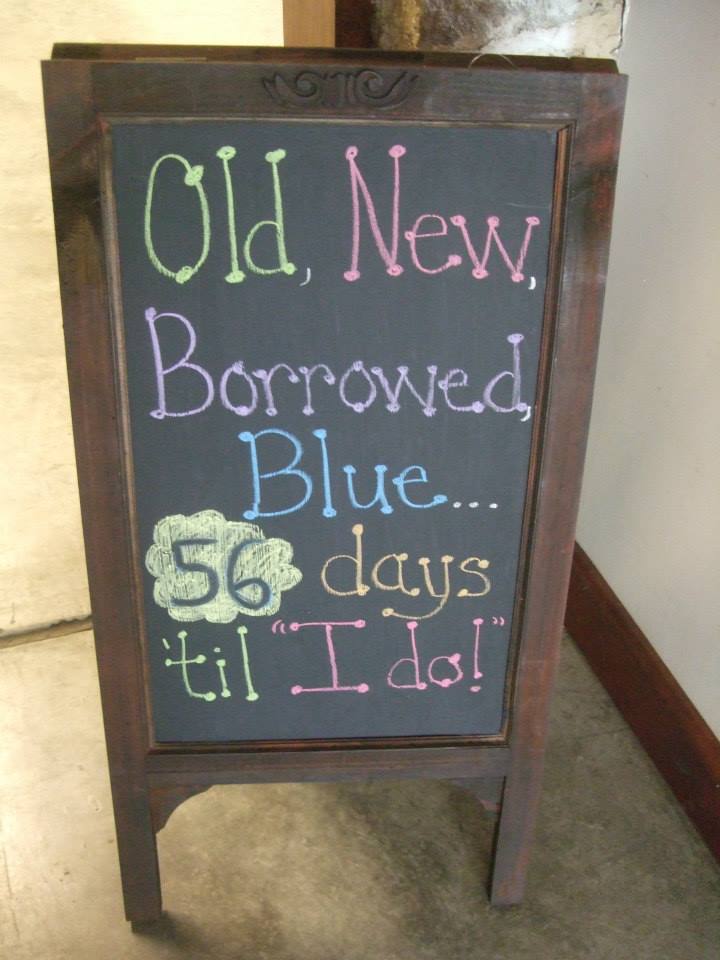 Old, New,
Borrowed,
Blue...
56 days
'til "I do!"